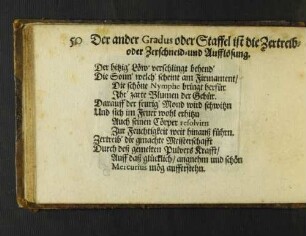 50 Der ander Gradus oder Staffel ist die Zertreib-
oder Zerschneid-und Aufflösung.
Der hitzig Löw verschlingt behend
Die Sonn welch scheint am Firmament/
Die schöne Nymphe bringt herfür
Ihr zarte Blumen der Gebür.
Darauff der feurig Mond wird schwitzn
Und sich im Feuer wohl erhitzn
Auch seinen Cörper resolvirn
Zur Feuchtigkeit weit hinauß führn.
Zertreib die gemachte Meisterschafft
Durch deß gemelten Pulvers Krafft/
Auff daß glücklich/ angnehm und schön
Mercurius mög aufferstehn.